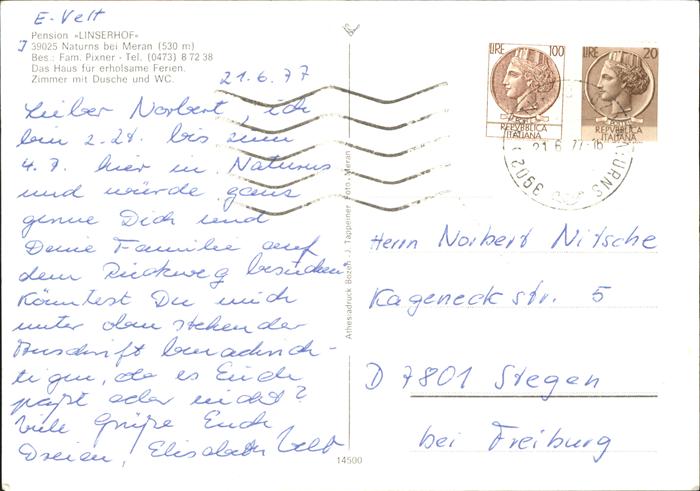 E. Velt
Pension «LINSERHOF»
I 39025 Naturns bei Meran (530 m)
Bes.: Fam. Pixner - Tel. (0473) 8 72 38
Das Haus für erholsame Ferien.
Zimmer mit Dusche und WC.
21.6.77
Lieber Norbert, ich
bin 2.21. bis zum
4.7. hier in Naturns
und würde ganz
gerne Dich und
Deine Familie auf
dem Rückweg besuchen.
Könntest Du mich
unter oben stehender
Anschrift benachrich-
tigen, ob es Euch
paßt oder nicht?
Viele Grüße Euch
Dreien, Elisabeth Velt
Anthesiadruck Bozen - J. Tappeiner Foto, Meran
14500
LIRE 100
REPVBBLICA
ITALIANA
LIRE 20
REPVBBLICA
ITALIANA
21.6.77-16
3902
Herrn Norbert Nitsche
Kageneckstr. 5
D 7801 Stegen
bei Freiburg